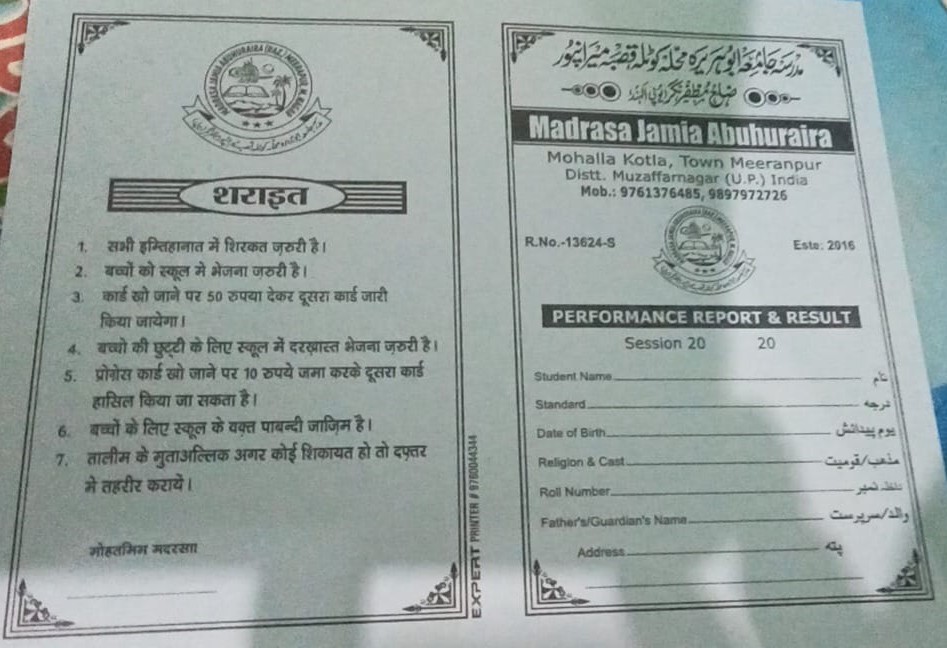 MADRASA JAMIA ABUHURAIRA (RAZ.) MEERANPUR, M. NAGAR
शराइत
1. सभी इम्तिहानात में शिरकत ज़रुरी है।
2. बच्चों को स्कूल मे भेजना ज़रुरी है।
3. कार्ड खो जाने पर 50 रुपया देकर दूसरा कार्ड जारी
किया जायेगा।
4. बच्चो की छुट्टी के लिए स्कूल में दरख़ास्त भेजना ज़रुरी है।
5. प्रोग्रेस कार्ड खो जाने पर 10 रुपये जमा करके दूसरा कार्ड
हासिल किया जा सकता है।
6. बच्चों के लिए स्कूल के वक्त पाबन्दी जाज़िम है।
7. तालीम के मुताअल्लिक अगर कोई शिकायत हो तो दफ़्तर
मे तहरीर करायें।
मोहतमिम मदरसा
EXPERT PRINTER # 9760044344
مدرسہ جامعہ ابوہریرہ محلہ کوٹلہ قصبہ میرانپور
ضلع مظفرنگر یوپی الہند
Madrasa Jamia Abuhuraira
Mohalla Kotla, Town Meeranpur
Distt. Muzaffarnagar (U.P.) India
Mob.: 9761376485, 9897972726
R.No.-13624-S
Este: 2016
PERFORMANCE REPORT & RESULT
Session 20 20
Student Name نام
Standard درجہ
Date of Birth یوم پیدائش
Religion & Cast مذہب/قومیت
Roll Number داخلہ نمبر
Father's/Guardian's Name والد/سرپرست
Address پتہ